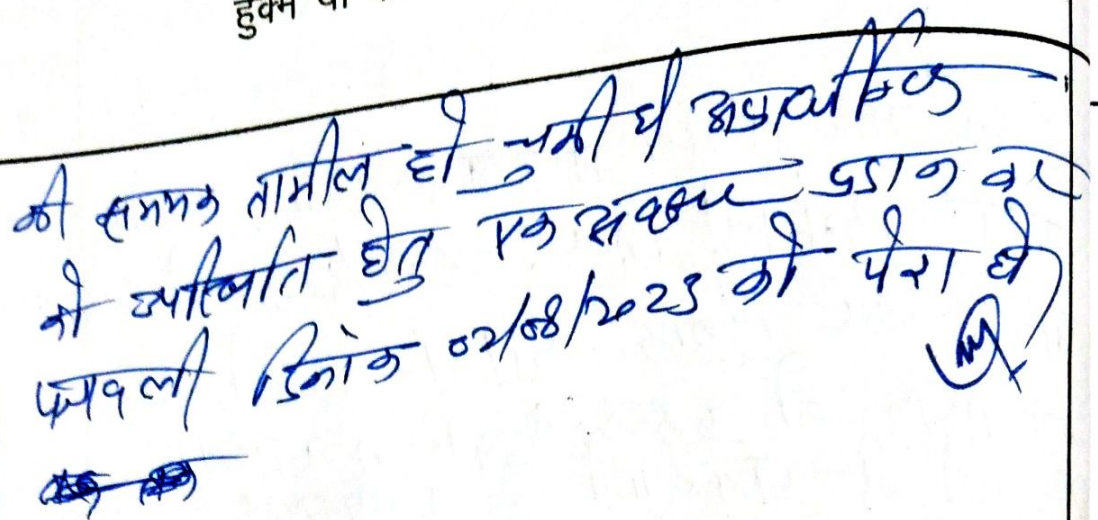 हुक्म या
की सम्मन तामील हो चुकी है अप्रार्थीगण
को उपस्थिति हेतु एक अवसर प्रदान कर
पत्रावली दिनांक 02/08/2023 को पेश हो